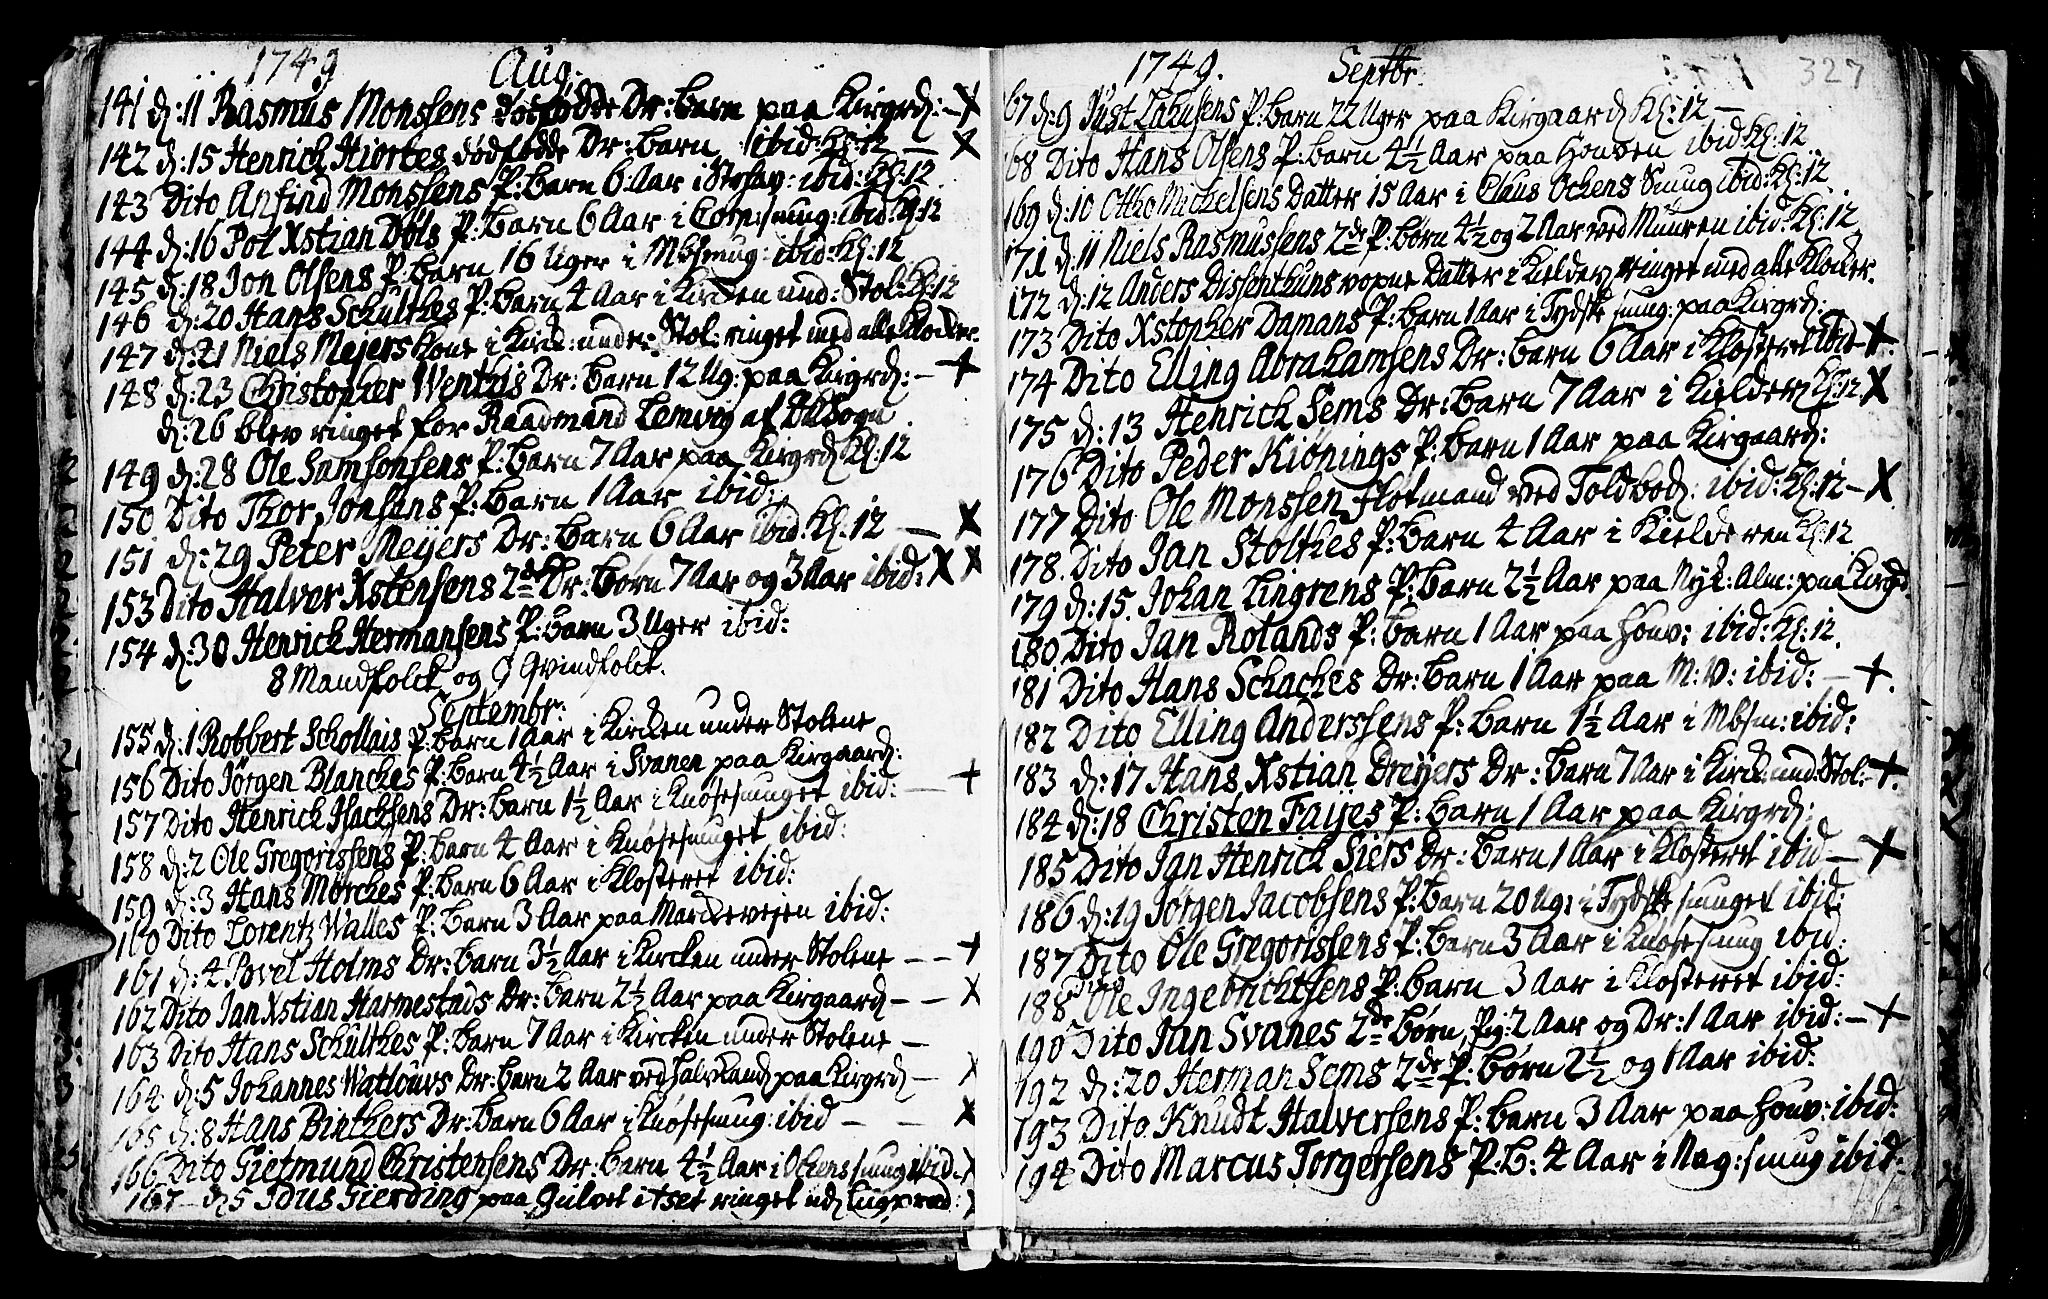 1749 Aug.
141 d: 11 Rasmus Monssens dødfødde Dr: barn paa Kirgrd: - X
142 d: 15 Henrich Hiortes dødfødde Dr: barn ibid: Kl: 12 - X
143 Dito Anfind Monssens P: barn 6 Aar i Strhav: ibid: Kl: 12
144 d: 16 Pol Xstian Døls P: barn 6 Aar i Corn: smug: ibid: Kl: 12
145 d: 18 Jon Olsens P: barn 16 Uger i Mbsmug: ibid: Kl: 12
146 d: 20 Hans Schulthes P: barn 4 Aar i Kirken und: Stol: Kl: 12
147 d: 21 Niels Mejers Kone i Kirk: under Stol: ringet med alle Klocker.
148 d: 23 Christopher Wenthis Dr: barn 12 Ug: paa Kirgrd: - +
d: 26 blev ringet for Raadmand Lemvig af Sogn
149 d: 28 Ole Samsonsens P: barn 7 Aar paa Kirgrd Kl: 12
150 Dito Thor Jonsens P: barn 1 Aar ibid:
151 d: 29 Peter Meyers Dr: barn 6 Aar ibid: Kl: 12 - X
153 Dito Halvor Xstensens 2de Dr: børn 7 Aar og 3 Aar ibid: X X
154 d: 30 Henrich Hermansens P: barn 3 Uger ibid:
8 Mandfolck og 6 Qvindfolck.
Septembr:
155 d: 1 Robbert Schollais P: barn 1 Aar i Kircken under Stolene
156 Dito Jørgen Blanckes P: barn 4½ Aar i Svanen paa Kirgaard:
157 Dito Henrich Isachsens Dr: barn 1½ Aar i Knøsesmuget ibid: - +
158 d: 2 Ole Gregorissens P: barn 4 Aar i Knøsesmuget ibid:
159 d: 3 Hans Mørckes P: barn 6 Aar i Klosteret ibid:
160 Dito Lorentz Walles P: barn 3 Aar paa Marckevejen ibid:
161 d: 4 Povel Holms Dr: barn 3½ Aar i Kircken under Stolene - - +
162 Dito Jan Xstian Harmestads Dr: barn 2½ Aar paa Kirgaard - - X
163 Dito Hans Schulthes P: barn 7 Aar i Kircken under Stolene -
164 d: 5 Johannes Watlours Dr: barn 2 Aar ved halvkand paa Kirgrd - X
165 d: 8 Hans Binthers Dr: barn 6 Aar i Knøsesmug: ibid - - X
166 Dito Gietmund Christensens Dr: barn 4½ Aar i Ockens smug ibid: X
167 - d 5 Idus Gierding paa Gulvet ringet
1749. Septbr. 327
67 d: 9 Just Lousens P: barn 22 Uger paa Kirgaard Kl: 12 -
68 Dito Hans Olsens P: barn 4½ Aar paa Houven ibid: Kl: 12
169 d: 10 Otho Michelsens Datter 15 Aar i Claus Ockens Smug ibid: Kl: 12
171 d: 11 Niels Rasmussens 2de P: børn 4½ og 2 Aar ved Muuren ibid: Kl: 12
172 d: 12 Anders Dissenthuns voxne Datter i Kielder ringet med alle Klocker.
173 Dito Xstopher Damans P: barn 1 Aar i Tydske smug: paa Kirgrd:
174 Dito Elling Abrahamsens Dr: barn 6 Aar i Klosteret ibid +
175 d: 13 Henrich Sems Dr: barn 7 Aar i Kielder Kl: 12 X
176 Dito Peder Kiönings P: barn 1 Aar paa Kirgaard:
177 Dito Ole Monssen Fløtmand ved Toldbod: ibid: Kl: 12 - X
178. Dito Jan Stolthes P: barn 4 Aar i Kielderen Kl: 12
179 d: 15. Johan Lingrens P: barn 2½ Aar paa Nyk: Alm: paa Kirgd.
180 Dito Jan Rolands P: barn 1 Aar paa Houv: ibid: Kl: 12.
181 Dito Hans Schackes Dr: barn 1 Aar paa M: V: ibid: - +.
182 Dito Elling Anderssens P: barn 1½ Aar i Mbsm: ibid:
183 d: 17 Hans Xstian Dreyers Dr: barn 7 Aar i Kirck: und: Stol: - +.
184 d: 18 Christen Fayes P: barn 1 Aar paa Kirgrd:
185 Dito Jan Henrich Siers Dr: barn 1 Aar i Klosteret ibid - +
186 d: 19 Jørgen Jacobsens P: barn 20 Ug: i Tydske smuget ibid:
187 Dito Ole Gregorissens P: barn 3 Aar i Knøsesmug ibid:
188 Dito Ole Ingebrichtsens P: barn 3 Aar i Klosteret ibid:
190 Dito Jan Svanes 2de børn, Pig: 2 Aar og Dr: 1 Aar ibid: - +
192 d: 20 Herman Sems 2de P: børn 2½ og 1 Aar ibid:
193 Dito Knudt Halversens P: barn 3 Aar paa Houv: ibid:
194 Dito Marcus Torgersens P: B: 4 Aar i Nag: smug ibid: